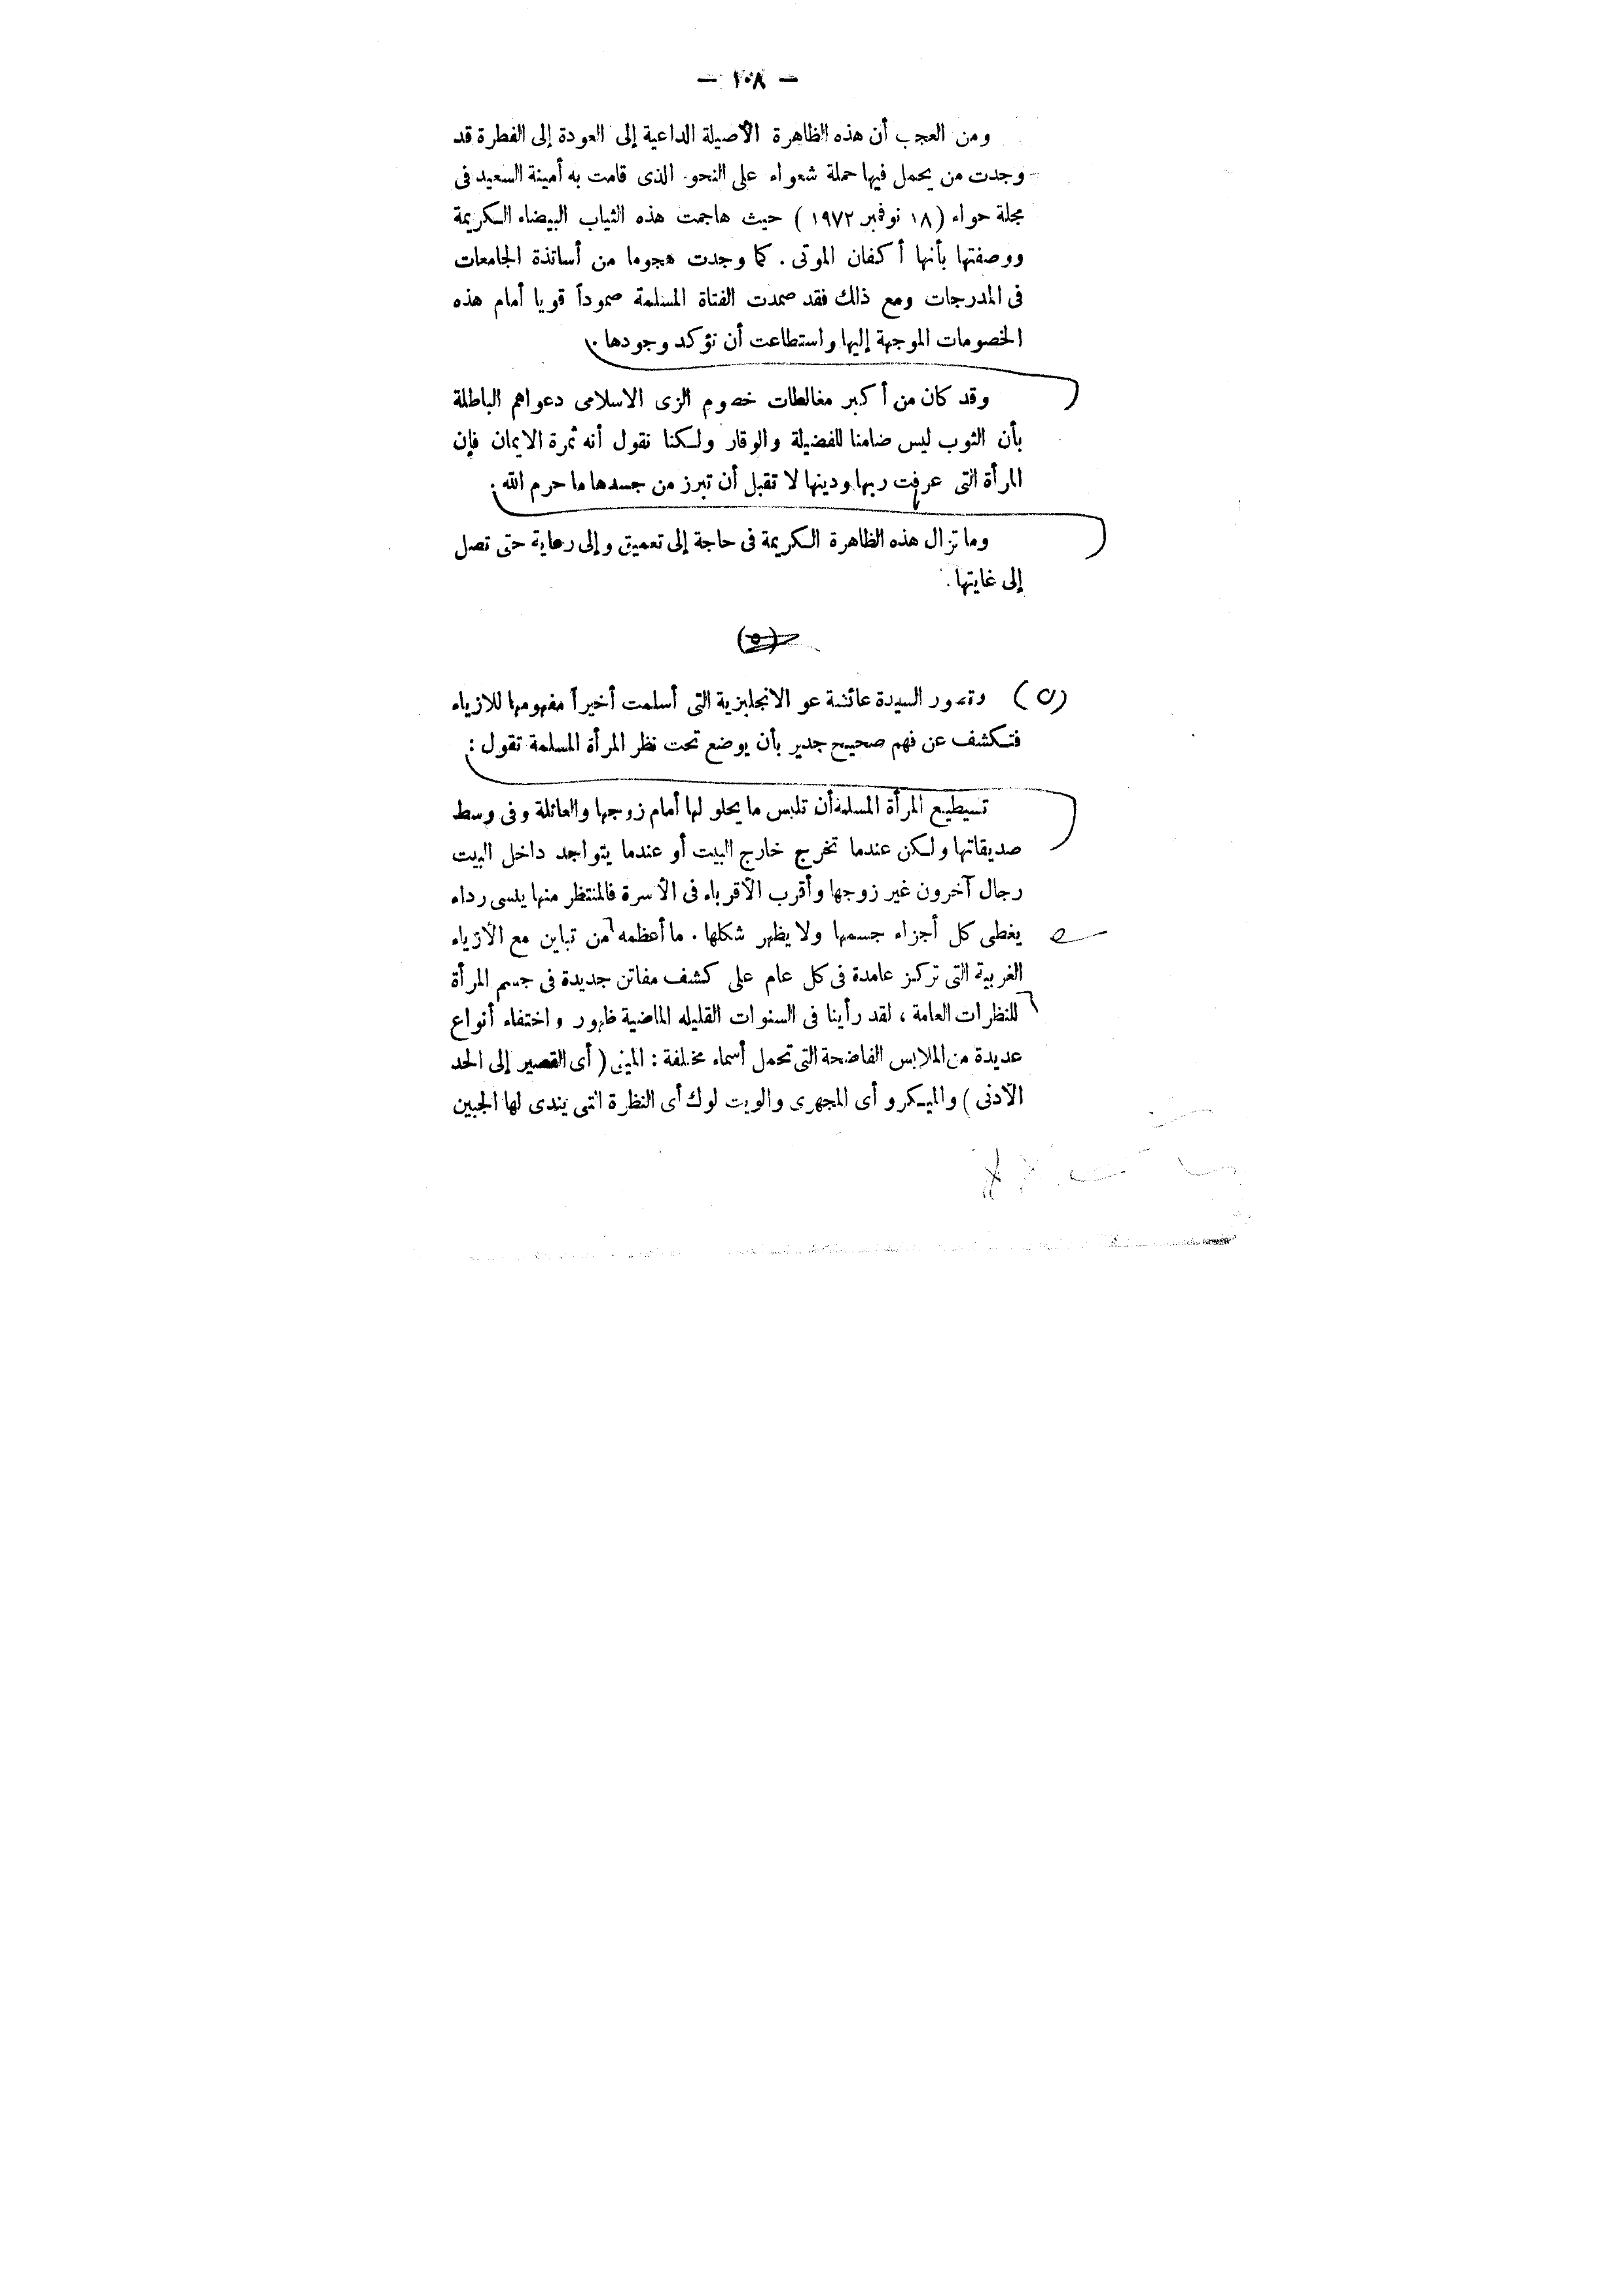 — ١٠٨ —
ومن العجب أن هذه الظاهرة الأصيلة الداعية إلى العودة إلى الفطرة قد
وجدت من يحمل فيها حملة شعواء على النحو الذى قامت به أمينة السعيد فى
مجلة حواء (١٨ نوفمبر ١٩٧٢) حيث هاجمت هذه الثياب البيضاء الكريمة
ووصفتها بأنها أكفان الموتى. كما وجدت هجوما من أساتذة الجامعات
فى المدرجات ومع ذلك فقد صمدت الفتاة المسلمة صموداً قويا أمام هذه
الخصومات الموجهة إليها واستطاعت أن تؤكد وجودها.
وقد كان من أكبر مغالطات خصوم الزى الاسلامى دعواهم الباطلة
بأن الثوب ليس ضامنا للفضيلة والوقار ولكنا نقول أنه ثمرة الايمان فإن
المرأة التى عرفت ربها ودينها لا تقبل أن تبرز من جسدها ما حرم الله.
وما تزال هذه الظاهرة الكريمة فى حاجة إلى تعميق وإلى رعاية حتى تصل
إلى غايتها.
(٥)
(٥) وتصور السيدة عائشة عو الانجليزية التى أسلمت أخيراً مفهومها للازياء
فتكشف عن فهم صحيح جدير بأن يوضع تحت نظر المرأة المسلمة تقول:
تسيطيع المرأة المسلمة أن تلبس ما يحلو لها أمام زوجها والعائلة وفى وسط
صديقاتها ولكن عندما تخرج خارج البيت أو عندما يتواجد داخل البيت
رجال آخرون غير زوجها وأقرب الأقرباء فى الأسرة فالمنتظر منها يلسى رداء
يغطى كل أجزاء جسمها ولا يظهر شكلها. ما أعظمه من تباين مع الأزياء
الغربية التى تركز عامدة فى كل عام على كشف مفاتن جديدة فى جسم المرأة
للنظرات العامة، لقد رأينا فى السنوات القليله الماضية ظهور واختفاء أنواع
عديدة من الملابس الفاضحة التى تحمل أسماء مختلفة: المينى (أى القصير إلى الحد
الأدنى) والميكرو أى المجهرى والويت لوك أى النظرة التى يندى لها الجبين